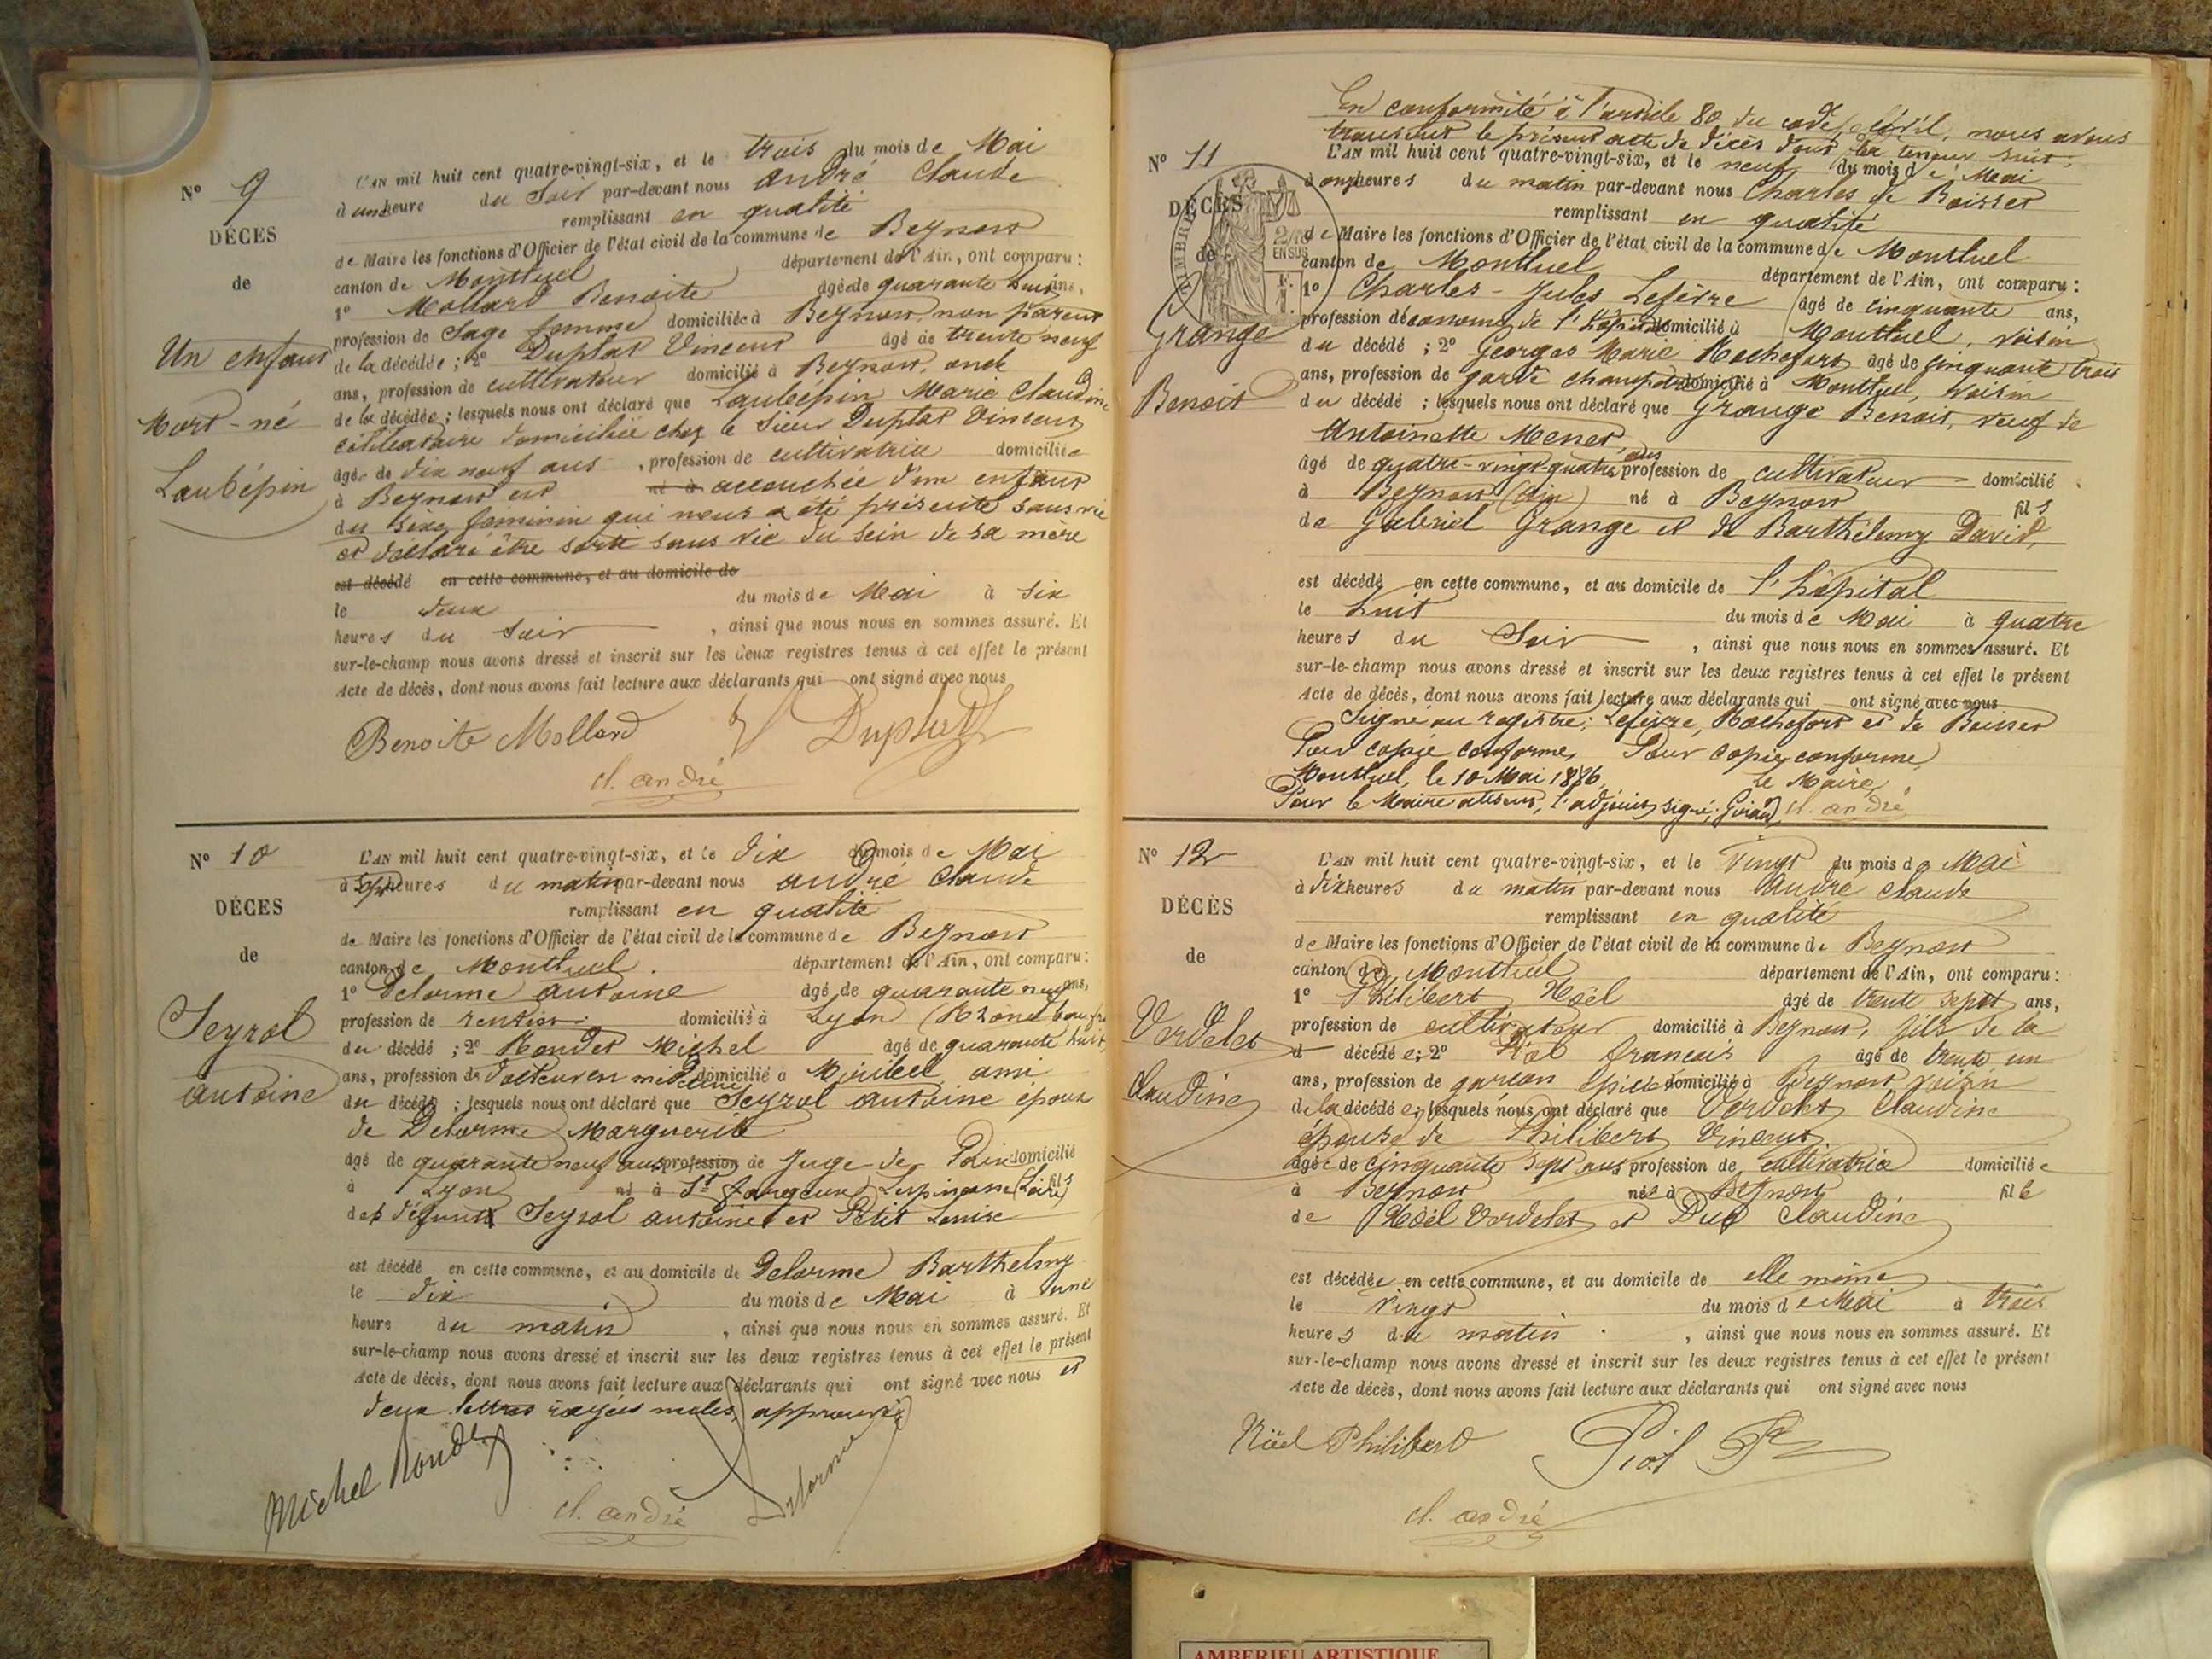 N° 9
DÉCES
de
Un enfant
Mort-né
Laubépin
L'AN mil huit cent quatre-vingt-six, et le trois du mois de Mai
à une heure du Soir par-devant nous André Claude
remplissant en qualité
de Maire les fonctions d'Officier de l'état civil de la commune de Beynost
canton de Montluel département de l'Ain, ont comparu :
1° Mollard Benoite âgée de quarante huit ans,
profession de Sage femme domiciliée à Beynost, non parent
de la décédée ; 2° Duplat Vincent âgé de trente neuf
ans, profession de cultivateur domicilié à Beynost, oncle
de la décédée ; lesquels nous ont déclaré que Laubépin Marie Claudine
célibataire domiciliée chez le Sieur Duplat Vincent
âgée de dix neuf ans , profession de cultivatrice domiciliée
à Beynost est né à accouchée d'un enfant
du sexe féminin qui nous a été présenté sans vie
et déclaré être sorti sans vie du sein de sa mère
est décédé en cette commune, et au domicile de
le deux du mois de Mai à six
heures du Soir , ainsi que nous nous en sommes assuré. Et
sur-le-champ nous avons dressé et inscrit sur les deux registres tenus à cet effet le présent
Acte de décès, dont nous avons fait lecture aux déclarants qui ont signé avec nous
Benoite Mollard V Duplat
cl. andré
N° 10
DÉCES
de
Seyrol
Antoine
L'AN mil huit cent quatre-vingt-six, et le dix du mois de Mai
à sept heures du matin par-devant nous André Claude
remplissant en qualité
de Maire les fonctions d'Officier de l'état civil de la commune de Beynost
canton de Montluel département de l'Ain, ont comparu :
1° Delorme Antoine âgé de quarante neuf ans,
profession de rentier domicilié à Lyon (Rhône) beau fre
du décédé ; 2° Rondet Michel âgé de quarante huit
ans, profession de docteur en médecine domicilié à Miribel ami
du décédé ; lesquels nous ont déclaré que Seyrol Antoine époux
de Delorme Marguerite
âgé de quarante neuf ans profession de Juge de Paix domicilié
à Lyon né à St forgeux Lespinasse (Loire) fils
des défunts Seyrol Antoine et Petit Louise
est décédé en cette commune, et au domicile de Delorme Barthelmy
le dix du mois de Mai à une
heure du matin , ainsi que nous nous en sommes assuré. Et
sur-le-champ nous avons dressé et inscrit sur les deux registres tenus à cet effet le présent
Acte de décès, dont nous avons fait lecture aux déclarants qui ont signé avec nous et
deux lettres rayées nulles, approuvé
Michel Rondet Delorme
cl. andré
En conformité à l'article 80 du code civil, nous avons
transcrit le présent acte de décès dont la teneur suit :
N° 11
DÉCES
de
TIMBRE
2/10
EN SUS
Grange
Benoit
L'AN mil huit cent quatre-vingt-six, et le neuf du mois de Mai
à onze heures du matin par-devant nous Charles de Boisset
remplissant en qualité
de Maire les fonctions d'Officier de l'état civil de la commune de Montluel
canton de Montluel département de l'Ain, ont comparu :
1° Charles-Jules Lefèvre âgé de cinquante ans,
profession d'économe de l'hôpital domicilié à Montluel, voisin
du décédé ; 2° Georges Marie Rochefort âgé de cinquante trois
ans, profession de garde champêtre domicilié à Montluel, voisin
du décédé ; lesquels nous ont déclaré que Grange Benoit, veuf de
Antoinette Menet,
âgé de quatre-vingt-quatre ans profession de cultivateur domicilié
à Beynost (Ain) né à Beynost fils
de Gabriel Grange et de Barthélemy David,
est décédé en cette commune, et au domicile de l'hôpital
le huit du mois de Mai à quatre
heures du Soir , ainsi que nous nous en sommes assuré. Et
sur-le-champ nous avons dressé et inscrit sur les deux registres tenus à cet effet le présent
Acte de décès, dont nous avons fait lecture aux déclarants qui ont signé avec nous
Signé au registre : Lefèvre, Rochefort et de Boisset
Pour copie conforme, Pour copie conforme,
Montluel, le 10 Mai 1886, Le Maire,
Pour le Maire absent, l'adjoint signé: cl. andré
N° 12
DÉCÈS
de
Verdelet
Claudine
L'AN mil huit cent quatre-vingt-six, et le vingt du mois de Mai
à dix heures du matin par-devant nous André Claude
remplissant en qualité
de Maire les fonctions d'Officier de l'état civil de la commune de Beynost
canton de Montluel département de l'Ain, ont comparu :
1° Philibert Noël âgé de trente sept ans,
profession de cultivateur domicilié à Beynost, fils de la
d décédée; 2° Piot françois âgé de trente un
ans, profession de garçon domicilié à Beynost voisin
de la décédée; lesquels nous ont déclaré que Verdelet Claudine
épouse de Philibert Vincent
âgée de cinquante sept ans profession de cultivatrice domiciliée
à Beynost née à Beynost fille
de Noël Verdelet et Duc Claudine
est décédée en cette commune, et au domicile de elle même
le vingt du mois de Mai à trois
heures du matin , ainsi que nous nous en sommes assuré. Et
sur-le-champ nous avons dressé et inscrit sur les deux registres tenus à cet effet le présent
Acte de décès, dont nous avons fait lecture aux déclarants qui ont signé avec nous
Noël Philibert Piot
cl. andré
AMBERIEU ARTISTIQUE